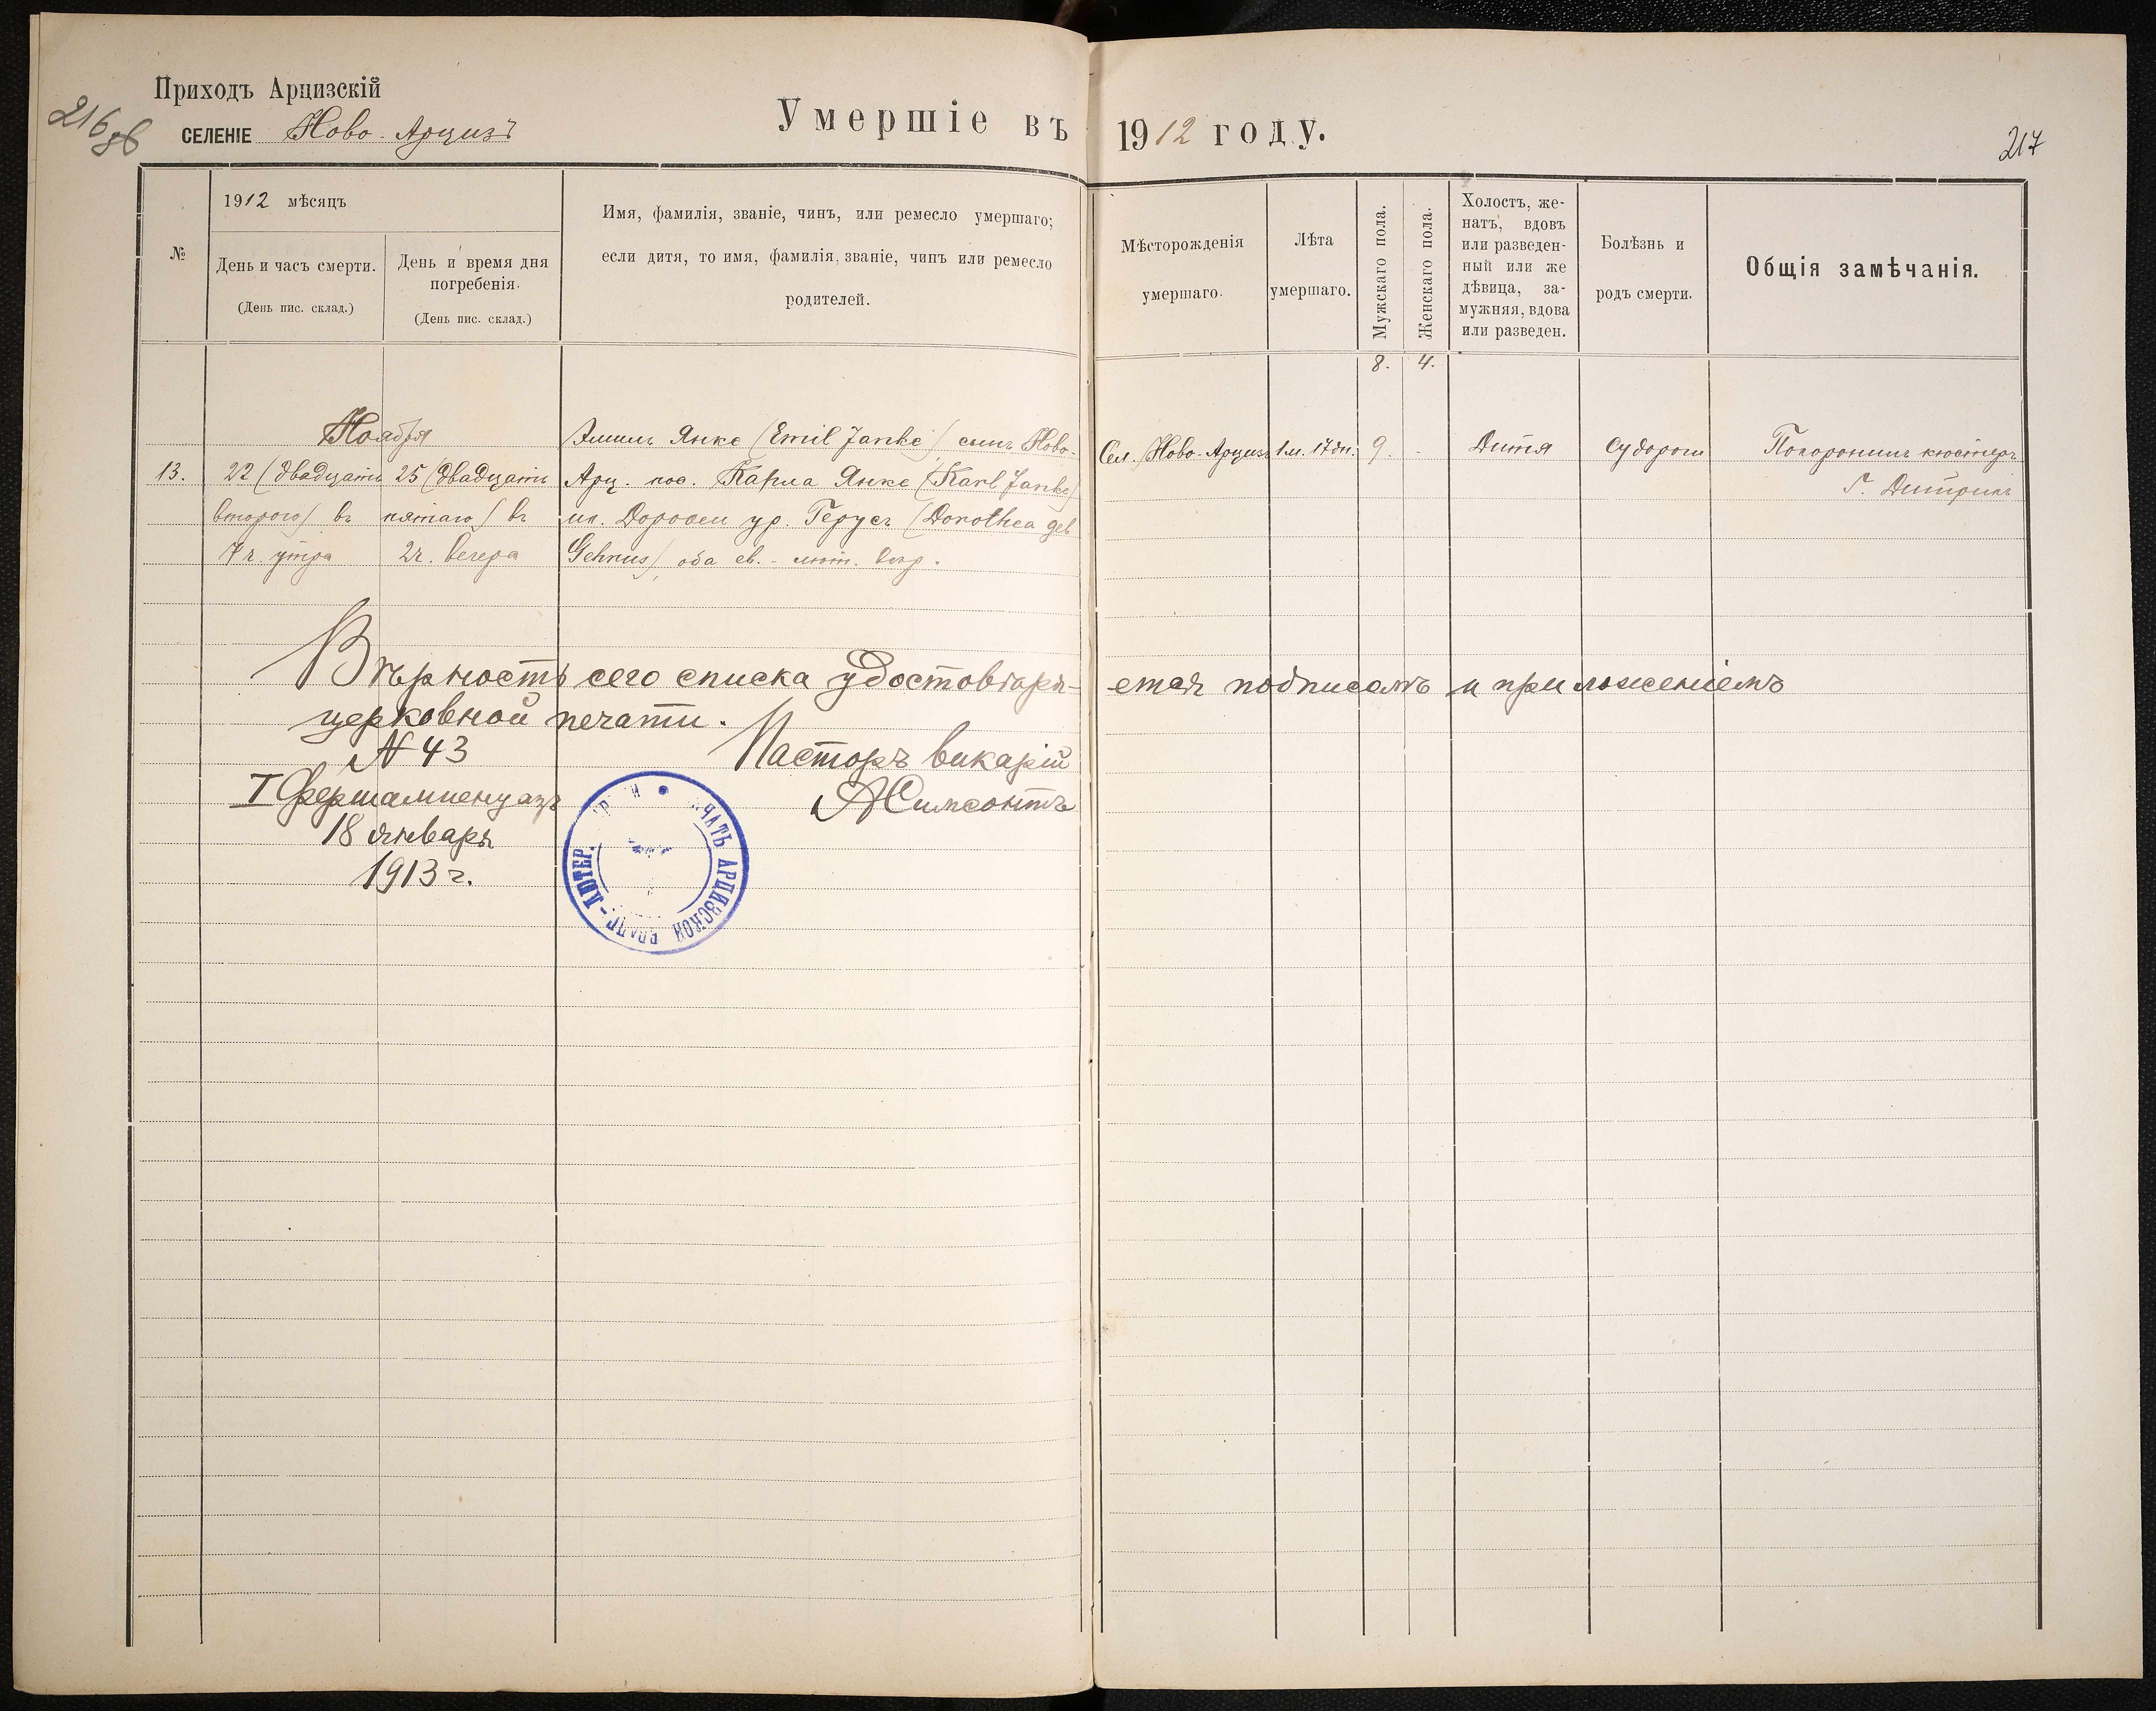 Приходъ Арцизскій
216 об
СЕЛЕНІЕ Ново-Арцизъ
Умершіе въ 1912 году.
217
№
1912 мѣсяцъ
День и часъ смерти.
(День пис. склад.)
День и время дня
погребенія.
(День пис. склад.)
Имя, фамилія, званіе, чинъ, или ремесло умершаго;
если дитя, то имя, фамилія, званіе, чинъ или ремесло
родителей.
Мѣсторожденія
умершаго.
Лѣта
умершаго.
Мужскаго пола.
Женскаго пола.
Холостъ, же-
натъ, вдовъ
или разведен-
ный или же
дѣвица, за-
мужняя, вдова
или разведен.
Болѣзнь и
родъ смерти.
Общія замѣчанія.
8. 4.
Ноября
13.
22 (двадцать
второго) въ
7 ч. утра
25 (двадцать
пятаго) въ
2 ч. вечера
Эмиль Янке (Emil Janke), сынъ Ново-
Арц. пос. Карла Янке (Karl Janke)
и Доротеи ур. Герусъ (Dorothea geb
Gehrus), оба ев.-лют. вѣр.
Сел. Ново-Арцизъ
1 м. 17 дн.
9. -
Дитя
Судороги
Похоронилъ кюстеръ
Г. Дитрихъ
Вѣрность сего списка удостовѣряется подписомъ и приложеніемъ
церковной печати.
N 43
I Фершампенуазъ
18 Январь
1913 г.
Пасторъ викарій
А Симсонъ
ПЕЧАТЬ АРЦИЗСКОЙ ЕВАНГ.-ЛЮТЕР.